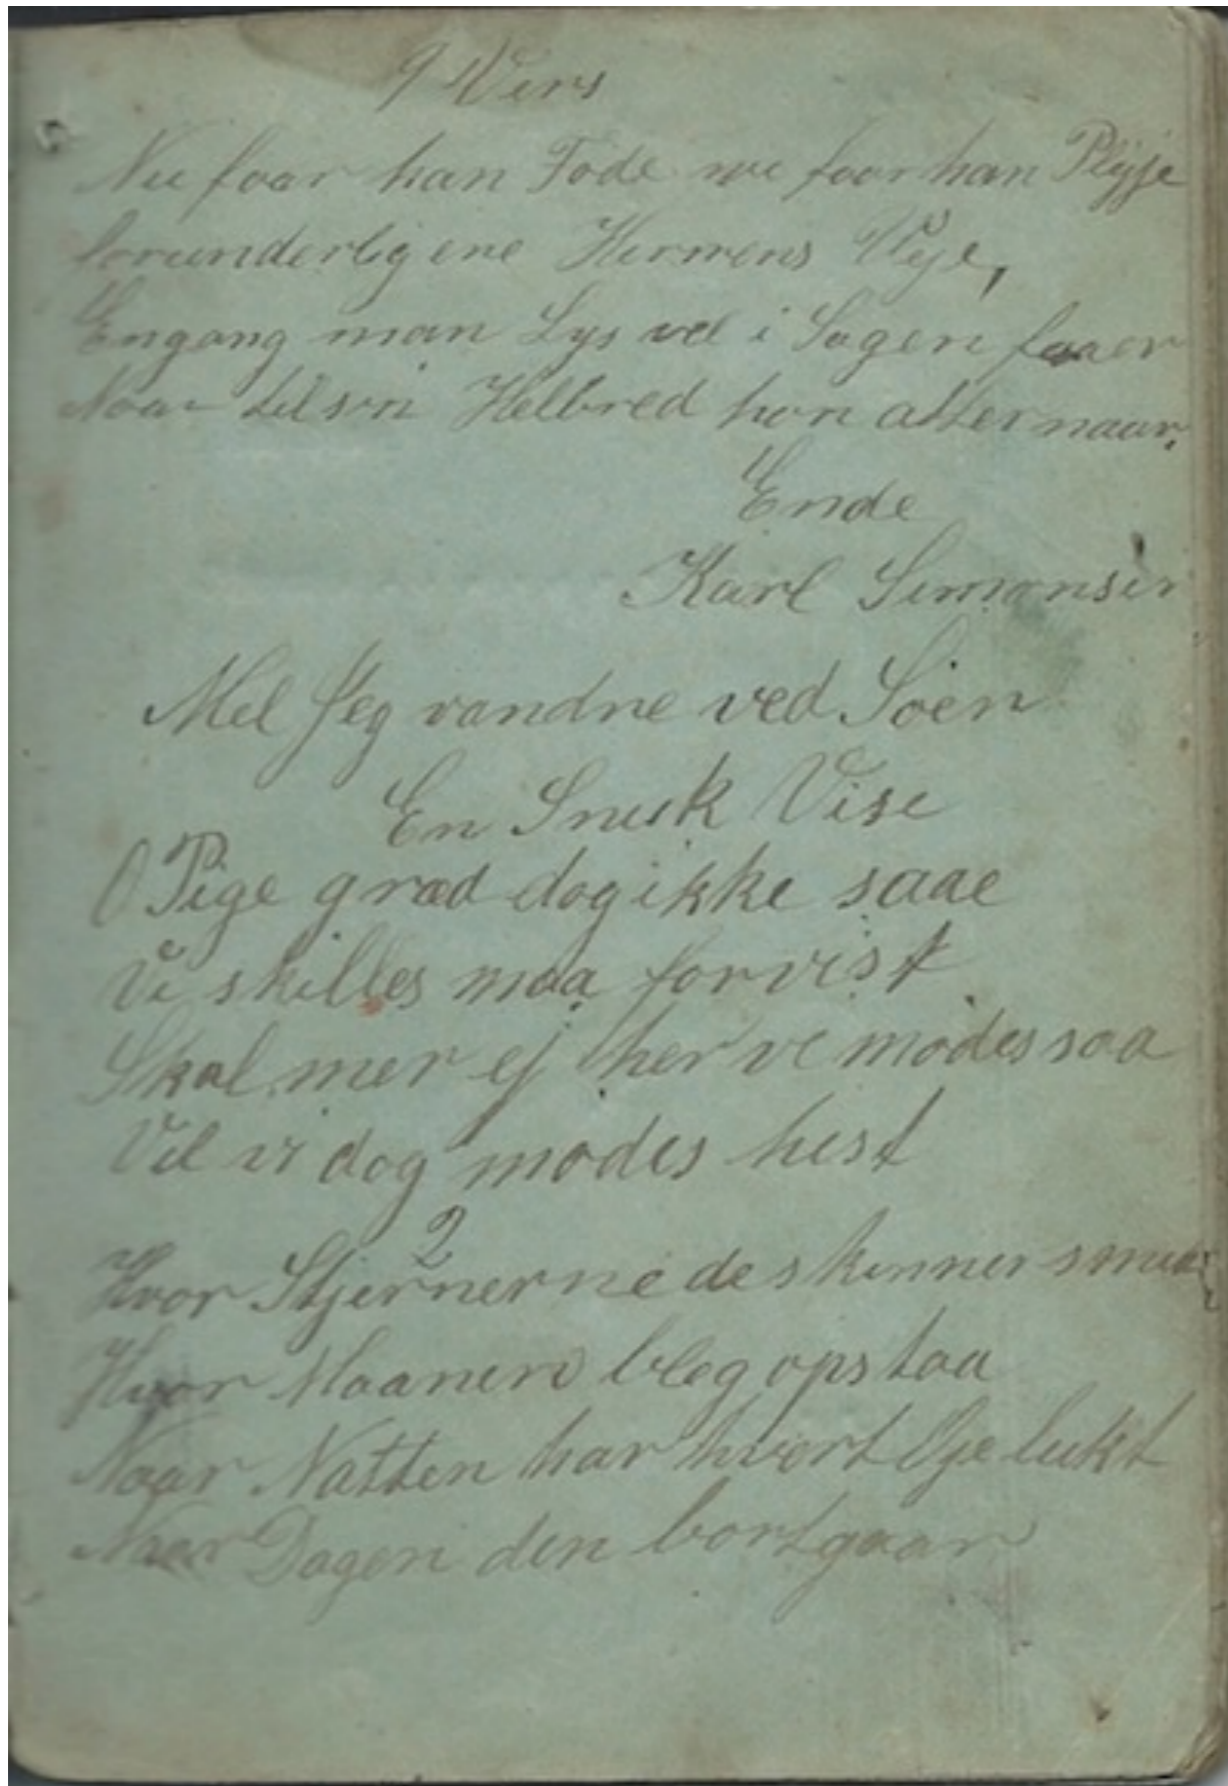 9 Vers
Nu faar han Føde nu faar han Plejje
forunderlig ene Herrens Veje,
Engang man Lys vel i Sagen faaer
Naar til sin Helbred hon atter naar.
Ende
Karl Simonsen
Mel Jeg vandne ved Söen
En Smuk Vise
O Pige græd dog ikke saae
Vi skilles maa forvist
Skal mer ej her vi mødes saa
Vil vi dog mødes hist
2
Hvor Stjernerne de skinner smua
Hvor Maanen bleg opstaa
Naar Natten har hvert Øje lukt
Naar Dagen den bortgaar